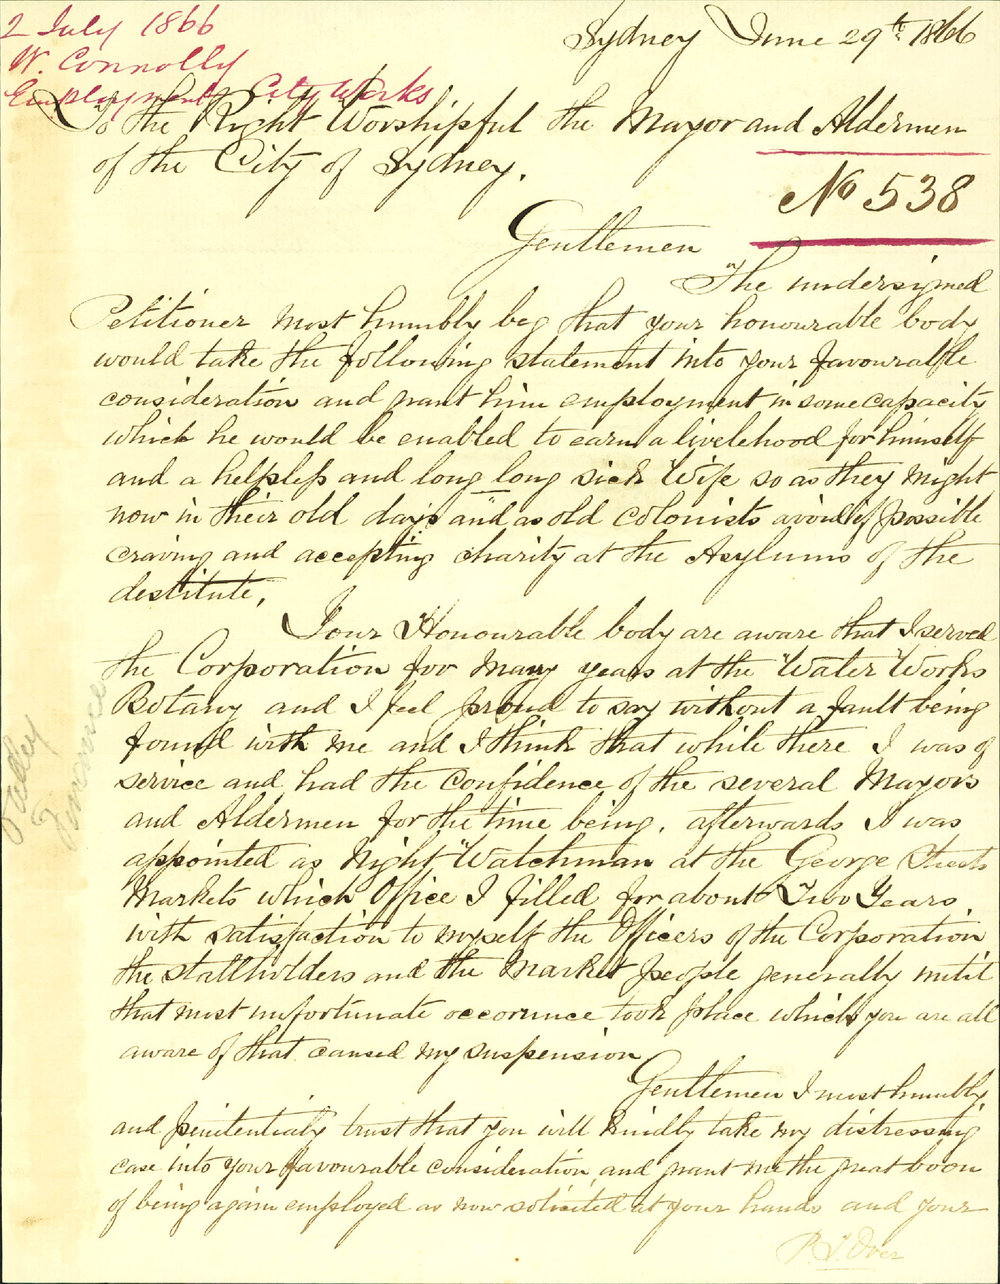 2 July 1866
W. Connolly
Employment City Works
Sydney June 29th 1866
To the Right Worshipful the Mayor and Aldermen
of the City of Sydney.
No 538
Gentlemen
The undersigned
Petitioner most humbly beg that your honourable body
would take the following statement into your favourable
consideration and grant him employment in some capacity
which he would be enabled to earn a livelehood for himself
and a helpless and long long sick Wife so as they might
now in their old days and as old colonists avoid if possible
craving and accepting charity at the Asylums of the
destitute.
Your Honourable body are aware that I served
the Corporation for many years at the Water Works
Botany and I feel proud to say without a fault being
found with me and I think that while there I was of
service and had the confidence of the several Mayors
and Aldermen for the time being. afterwards I was
appointed as Night Watchman at the George Streets
Markets which Office I filled for about Two Years
with satisfaction to myself the Officers of the Corporation
the stallholders and the Market people generally until
that most unfortunate occorunce took place which you are all
aware of that caused my suspension
Gentlemen I most humbly
and penitentialy trust that you will kindly take my distressing
case into your favourable consideration and grant me the great boon
of being again employed as now solicited at your hands and your
P.T. Over